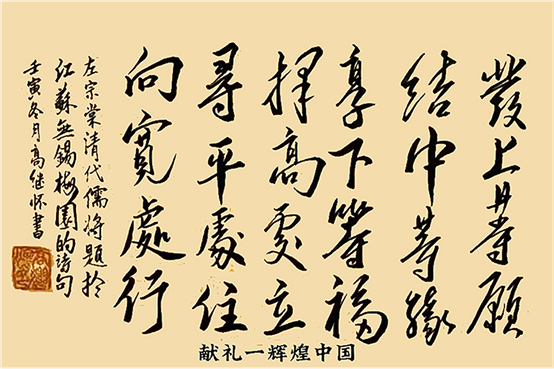 發上等願
結中等緣
享下等福
擇高處立
尋平處住
向寬處行
左宗棠清代儒将題於
江蘇無锡梅園的诗句
壬寅冬月高继怀書
献礼一辉煌中国